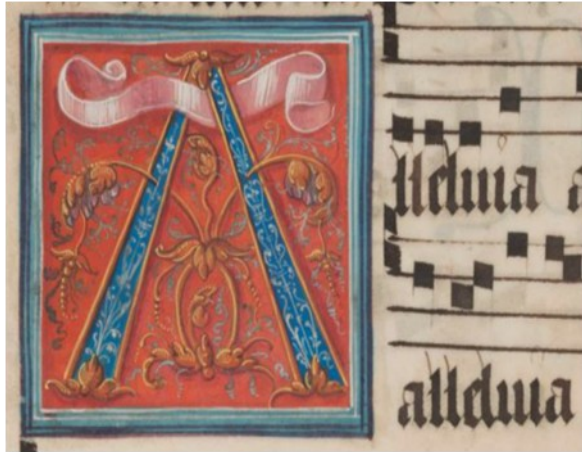 Alleluia a
alleluia